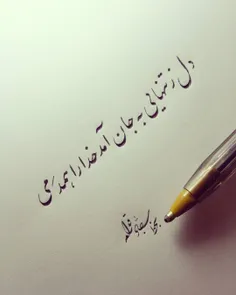 دل ز تنهایی به جان آمد خدا را همدمی